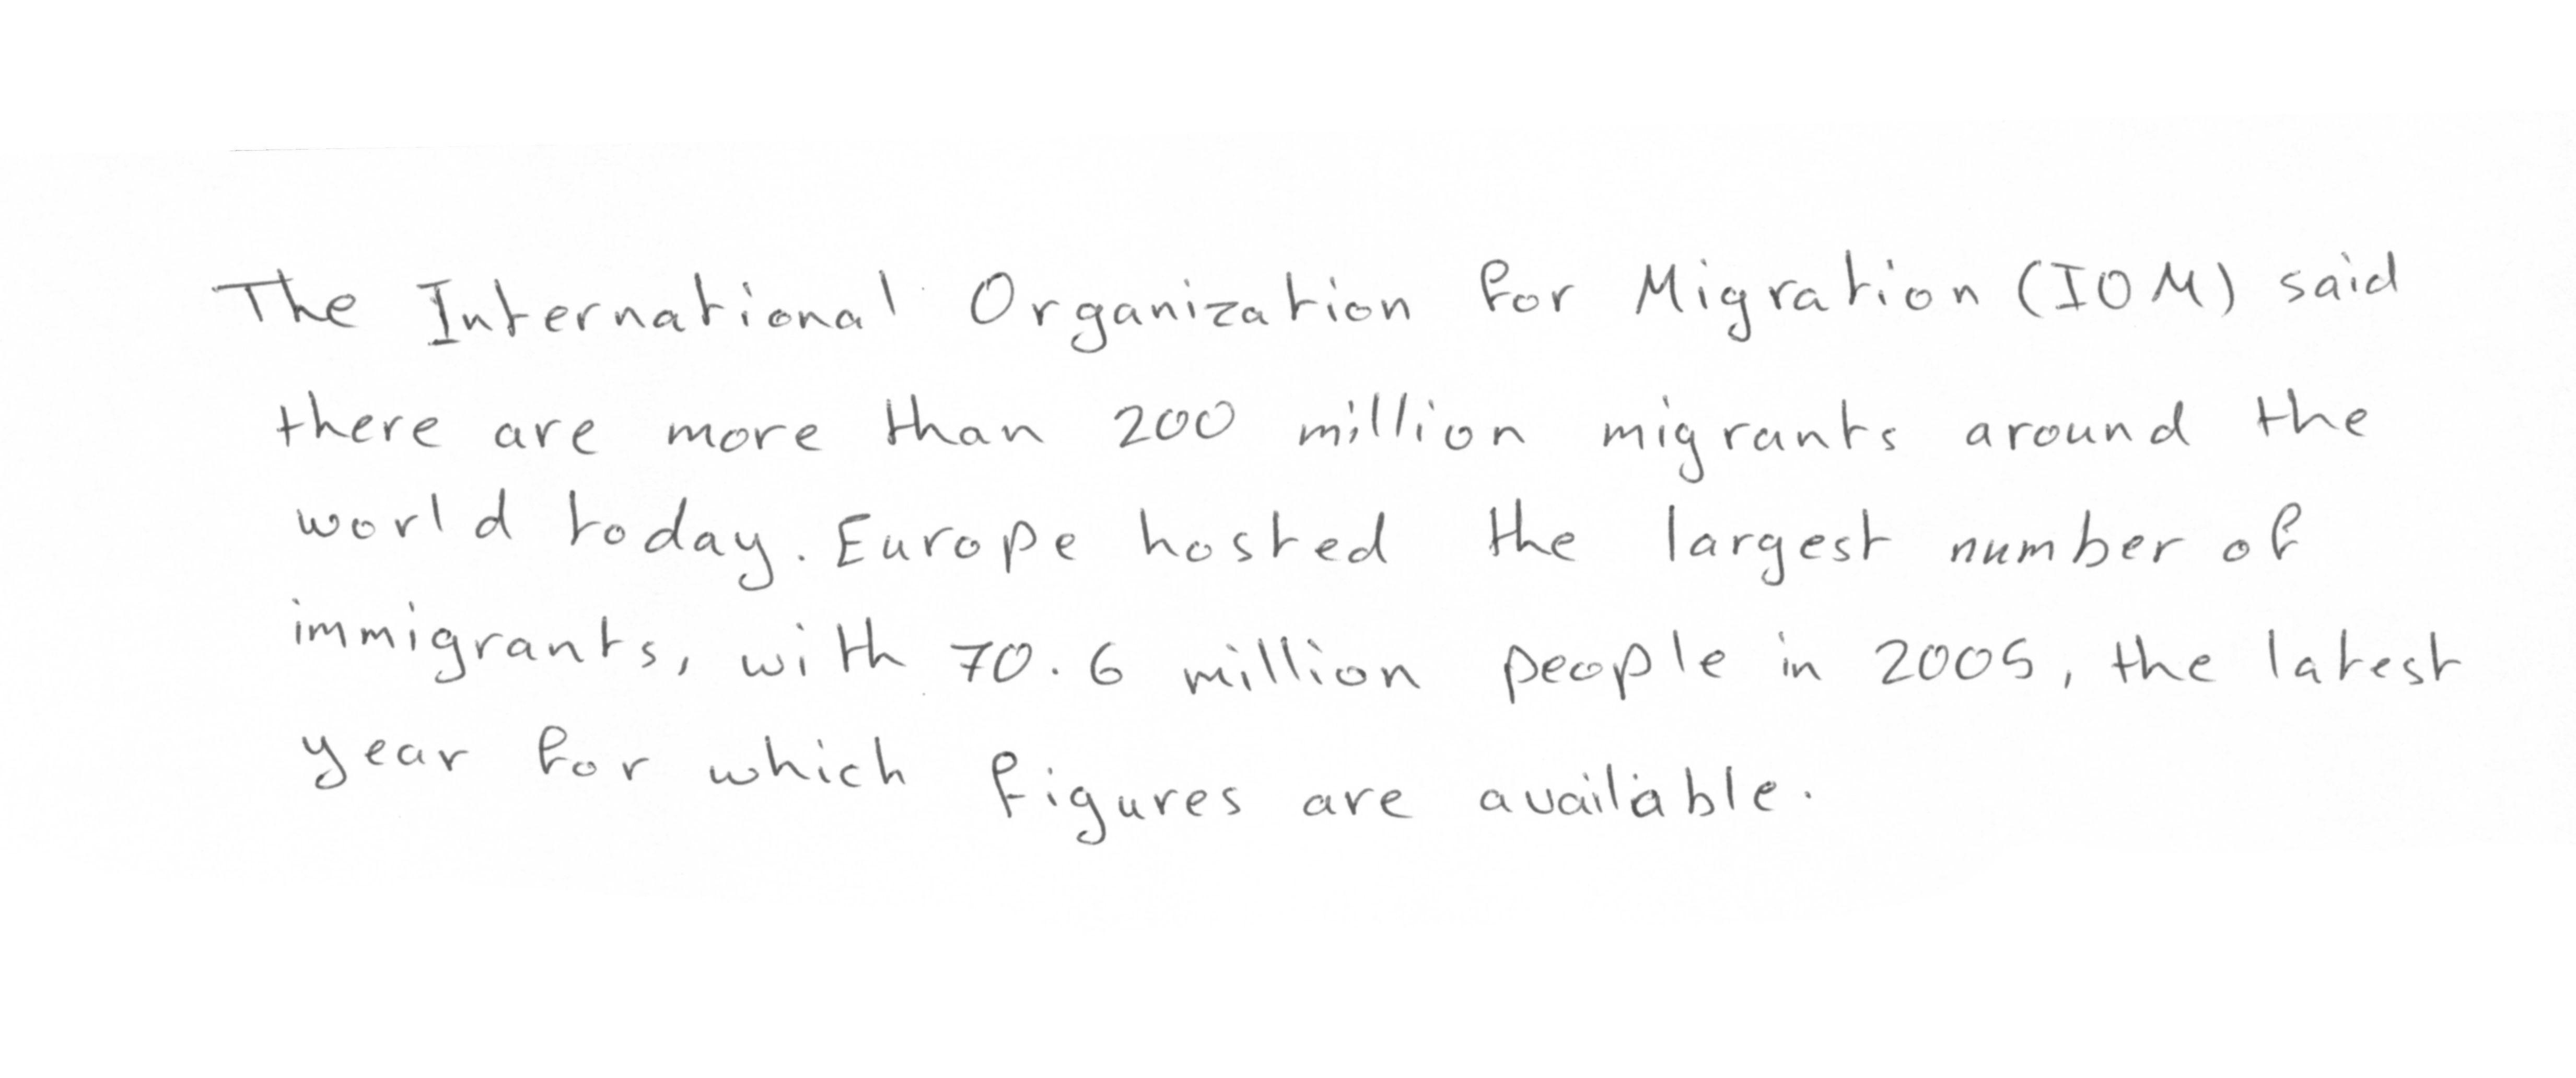 The International Organization for Migration (IOM) said
there are more than 200 million migrants around the
world today. Europe hosted the largest number of
immigrants, with 70.6 million people in 2005, the latest
year for which figures are available.